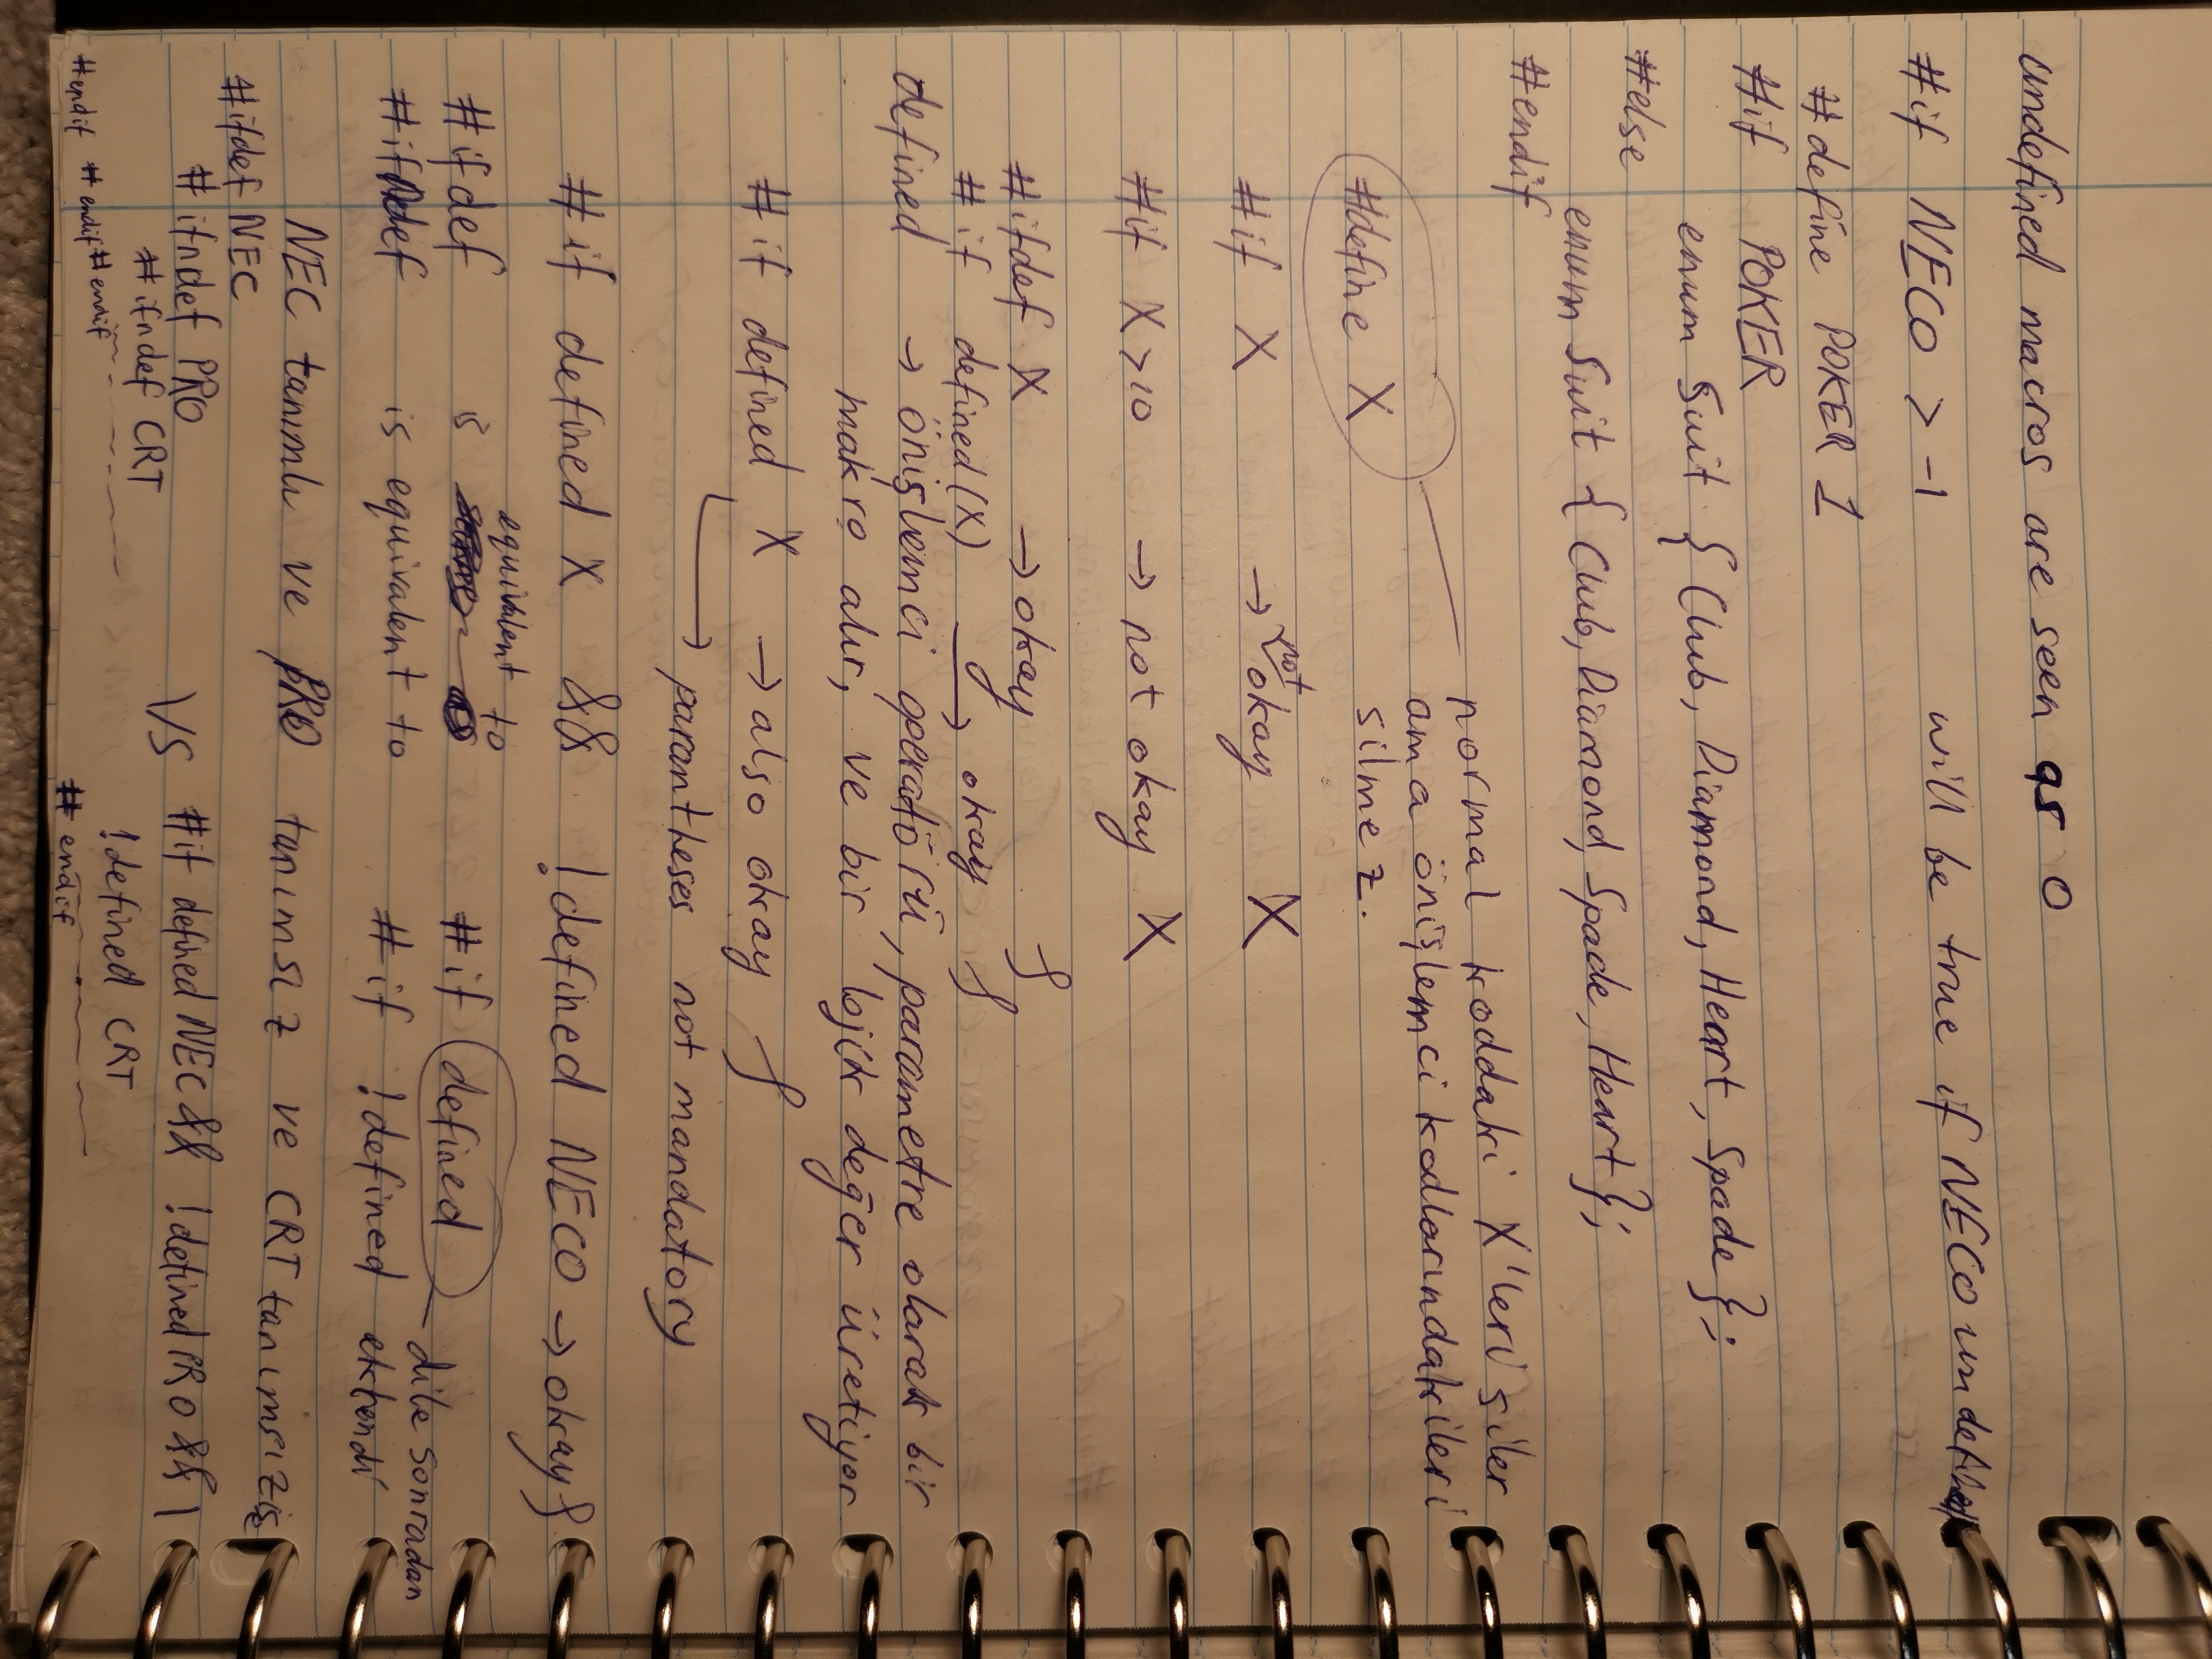 undefined macros are seen as 0
#if NECO > -1 will be true if NECO undefined
#define POKER 1
#if POKER
enum Suit { Club, Diamond, Heart, Spade };
#else
enum Suit { Club, Diamond, Spade, Heart };
#endif
normal koddaki X'leri siler
ama önişlemci kodlarındakileri
silmez.
#define X
#if X → not okay X
#if X>10 → not okay X
#ifdef X → okay
#if defined(X) → okay
defined → önişlemci operatörü, parametre olarak bir
makro alır, ve bir lojik değer üretiyor
#if defined X → also okay
→ parantheses not mandatory
#if defined X && !defined NECO → okay
#ifdef is equivalent to #if defined
dile sonradan
#ifndef is equivalent to #if !defined eklendi
NEC tanımlı ve PRO tanımsız ve CRT tanımsız ise
#ifdef NEC
#ifndef PRO VS #if defined NEC && !defined PRO && \
#ifndef CRT
!defined CRT
#endif #endif #endif
#endif